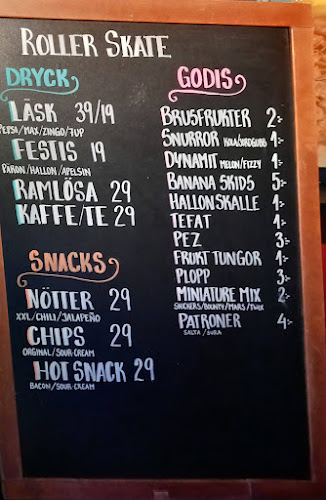 ROLLER SKATE
DRYCK
LÄSK 39/19
PEPSI/MAX/ZINGO/7UP
FESTIS 19
PÄRON/HALLON/APELSIN
RAMLÖSA 29
KAFFE/TE 29
SNACKS
NÖTTER 29
XXL/CHILI/JALAPEÑO
CHIPS 29
ORGINAL/SOUR-CREAM
HOT SNACK 29
BACON/SOUR-CREAM
GODIS
BRUSFRUKTER 2:-
SNURROR KOLA/JORDGUBB 1:-
DYNAMIT MELON/FIZZY 1:-
BANANA SKIDS 5:-
HALLONSKALLE 1:-
TEFAT 1:-
PEZ 3:-
FRUKT TUNGOR 1:-
PLOPP 3:-
MINIATURE MIX 2:-
SNICKERS/BOUNTY/MARS/TWIX
PATRONER 4:-
SALTA/SURA